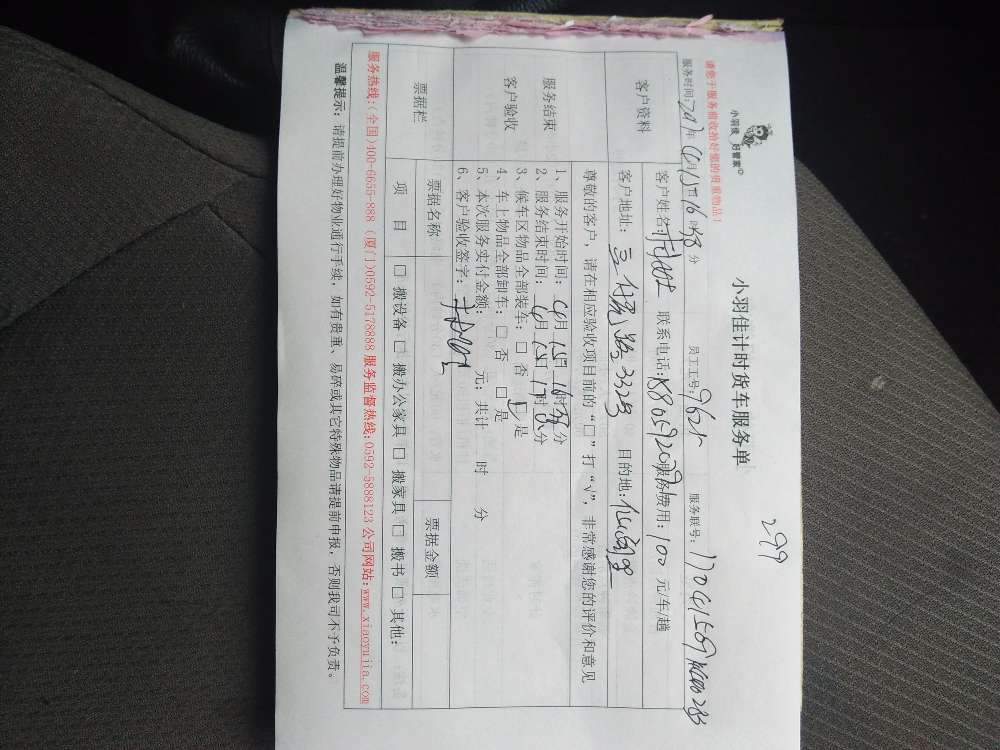 299
小羽佳计时货车服务单
小羽佳 好管家
请您于服务前收拾好您的贵重物品!
服务时间: 年 月 日 16 时 分 员工工号: 9625 服务联号:
客户资料
客户姓名: 联系电话: 服务费用: 100 元/车/趟
客户地址: 332号 目的地:
尊敬的客户, 请在相应验收项目前的“□”打“√”, 非常感谢您的评价和意见
服务结束
客户验收
1、服务开始时间: 4月 15日 16时 分
2、服务结束时间: 4月 15日 17时 分
3、候车区物品全部装车: □ 否 □ 是
4、车上物品全部卸车: □ 否 □ 是
5、本次服务实付金额: 元; 共计 时 分
6、客户验收签字:
票据栏
票据名称 票据金额
项 目 □ 搬设备 □ 搬办公家具 □ 搬家具 □ 搬书 □ 其他:
服务热线:(全国)400-6655-888 (厦门)0592-5178888 服务监督热线:0592-5888123 公司网站:www.xiaoyujia.com
温馨提示: 请提前办理好物业通行手续, 如有贵重、易碎或其它特殊物品请提前申报, 否则我司不予负责。